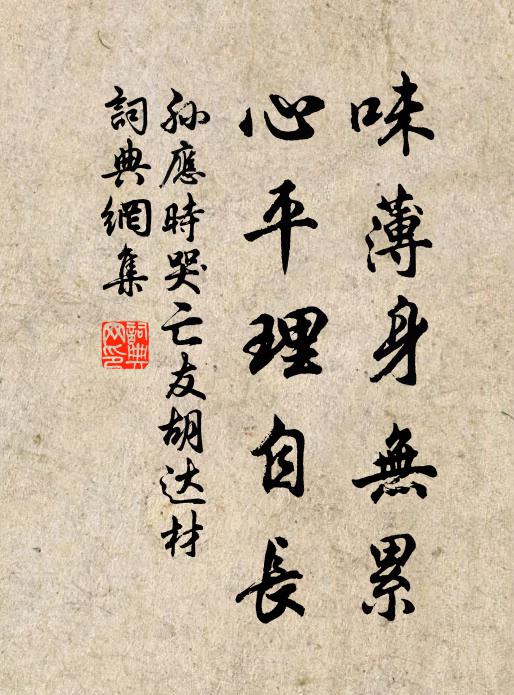 味薄身無累
心平理自長
孙應時哭亡友胡达材
詞典網集
詞典网印